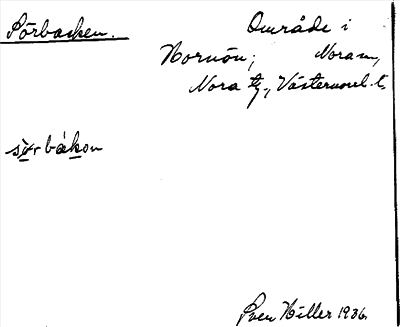 Sörbacken.
Område i
Hornön; Nora sn,
Nora tg., Västernorrl. l.
sörbakon
Sven Hiller 1936.